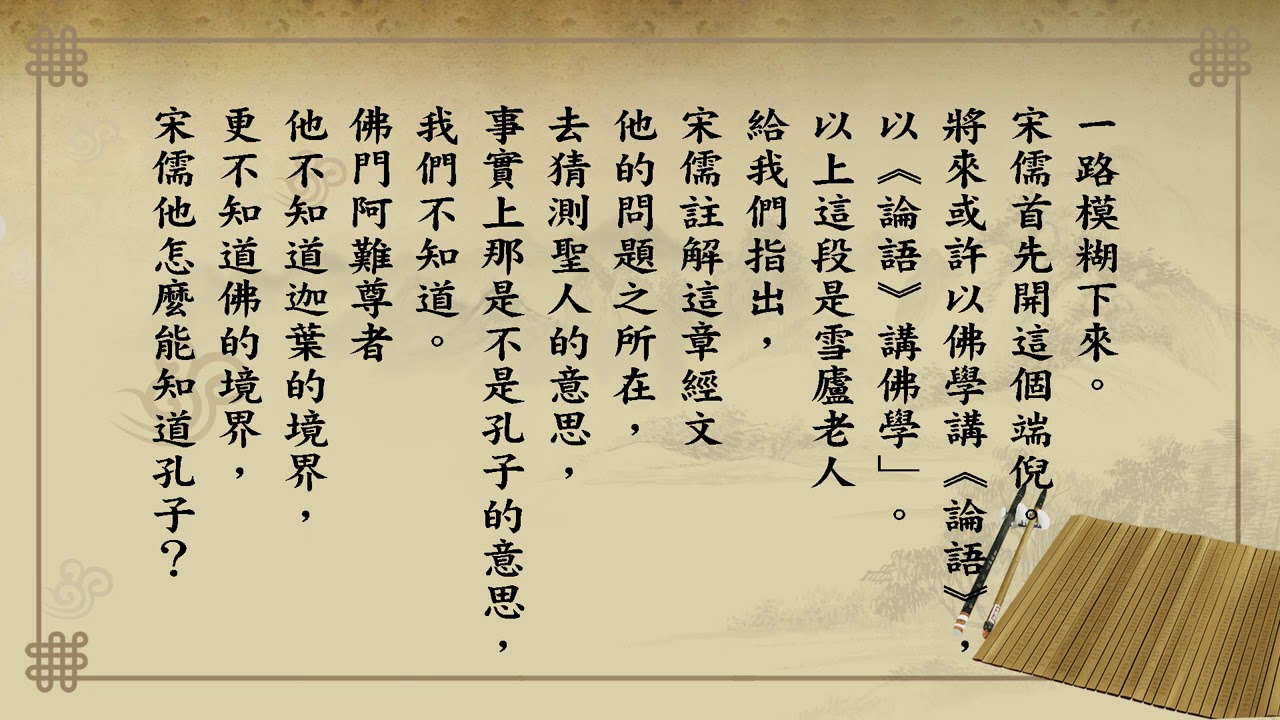 一路模糊下來。
宋儒首先開這個端倪。
將來或許以佛學講《論語》，
以《論語》講佛學」。
以上這段是雪廬老人
給我們指出，
宋儒註解這章經文
他的問題之所在，
去猜測聖人的意思，
事實上那是不是孔子的意思，
我們不知道。
佛門阿難尊者
他不知道迦葉的境界，
更不知道佛的境界，
宋儒他怎麼能知道孔子？